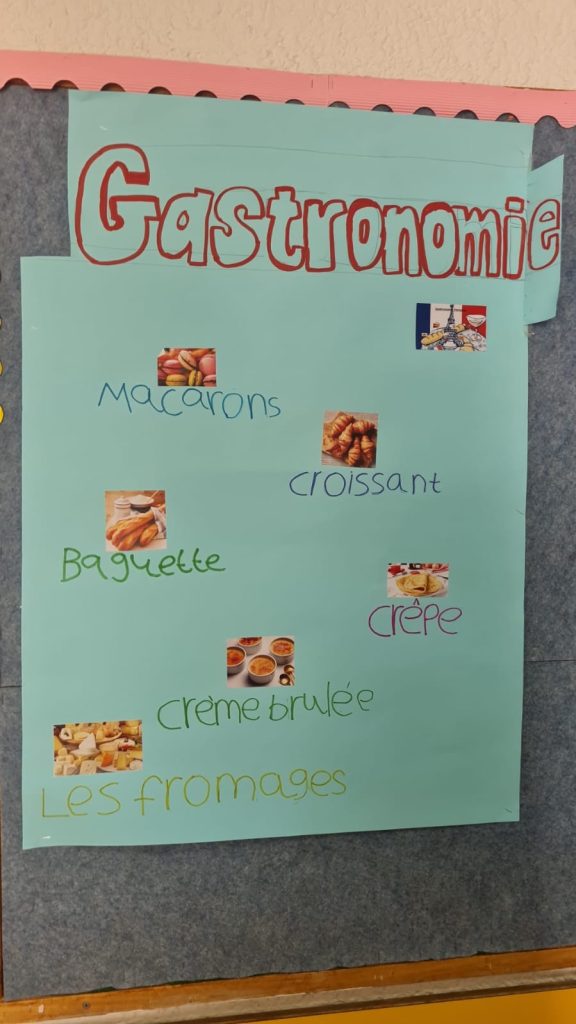 Gastronomie
Macarons
croissant
Baguette
crêpe
crème brulée
Les fromages